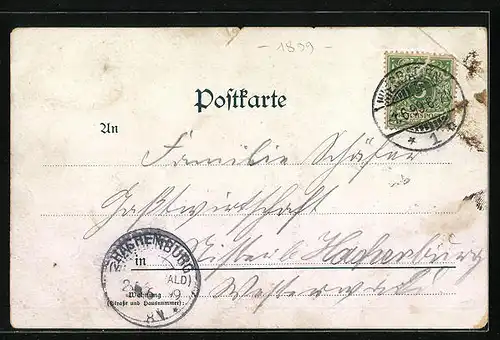 - 1899 -
Postkarte
An
Familie Schäfer
Gastwirtschaft
in Hachenburg
Westerwald
Wohnung
(Straße und Hausnummer)
HACHENBURG